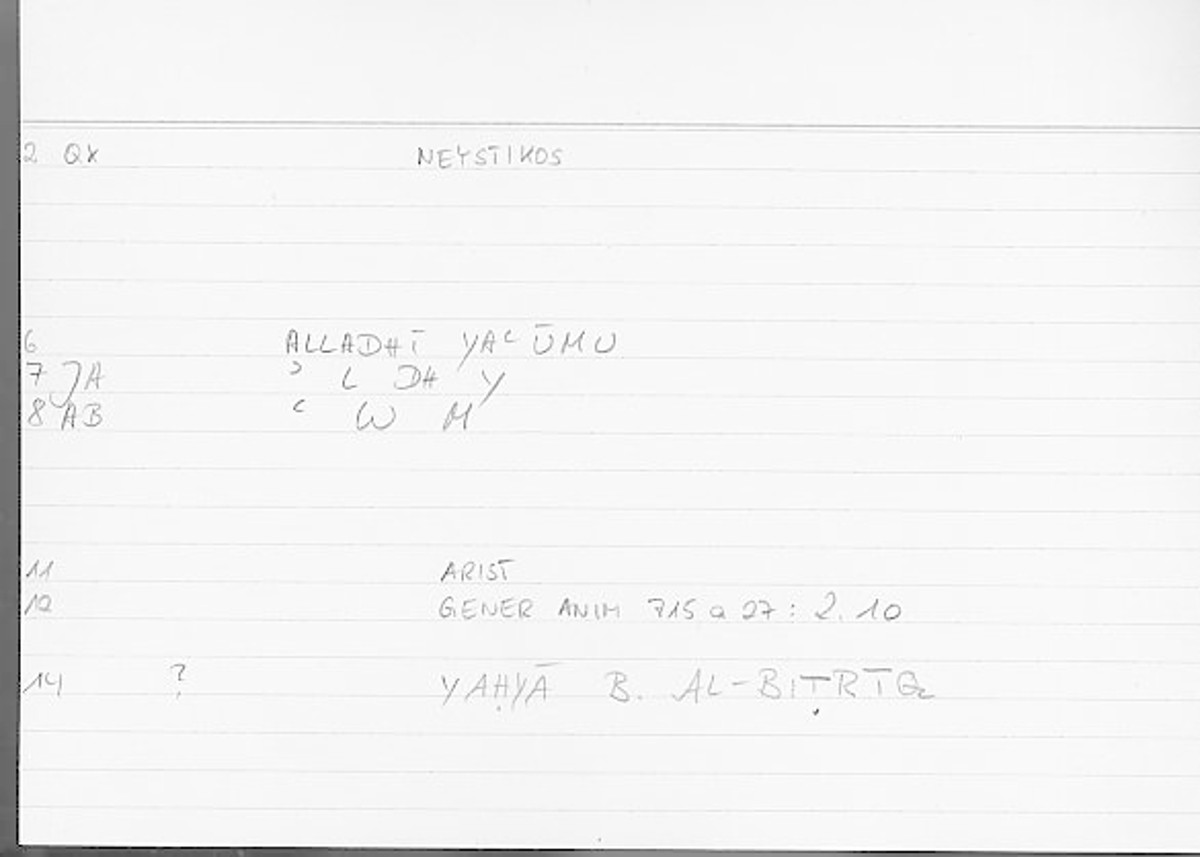 2 QX NEYSTIKOS
6 ALLADHĪ YAʿŪMU
7 JA ʾ L DH Y
8 AB ʿ W M
11 ARIST
12 GENER ANIM 715 a 27 : 2.10
14 ? YAḤYĀ B. AL-BIṬRĪQ